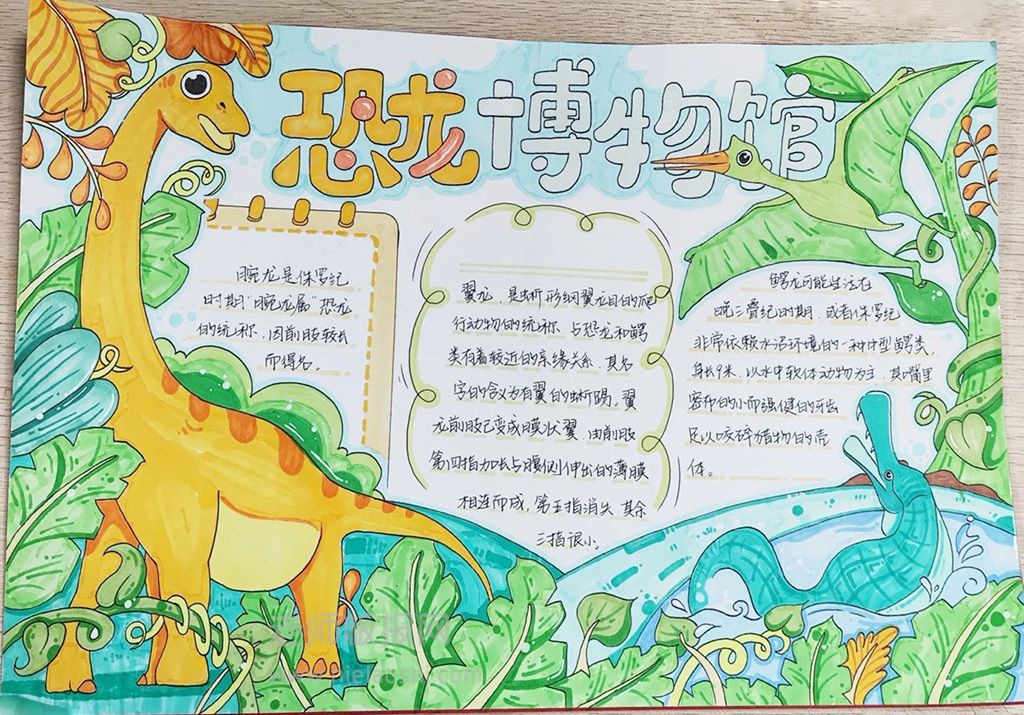 恐龙博物馆
腕龙是侏罗纪
时期"腕龙属"恐龙
的统称,因前肢较长
而得名。
翼龙,是蜥形纲翼龙目的爬
行动物的统称,与恐龙和鳄
类有着较近的亲缘关系,其名
字的含义为有翼的蜥蜴。翼
龙前肢已变成膜状翼,由前肢
第四指加长与腹侧伸出的薄膜
相连而成,第五指消失,其余
三指很小。
鳄龙可能生活在
晚三叠纪时期,或者侏罗纪
非常依赖水沼环境的一种中型鳄类,
身长9米,以水中软体动物为主,其嘴里
密布的小而强健的牙齿
足以咬碎猎物的壳
体。